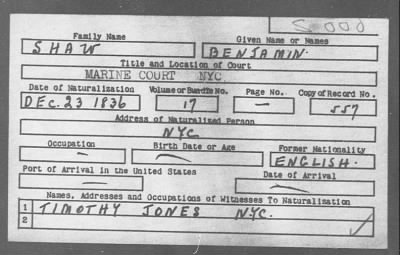 Family Name Given Name or Names
SHAW BENJAMIN.
Title and Location of Court
MARINE COURT NYC
Date of Naturalization Volume or Bundle No. Page No. Copy of Record No.
DEC. 23 1836 17 — 557
Address of Naturalized Person
NYC
Occupation Birth Date or Age Former Nationality
— — ENGLISH.
Port of Arrival in the United States Date of Arrival
— —
Names, Addresses and Occupations of Witnesses To Naturalization
1 TIMOTHY JONES NYC.
2